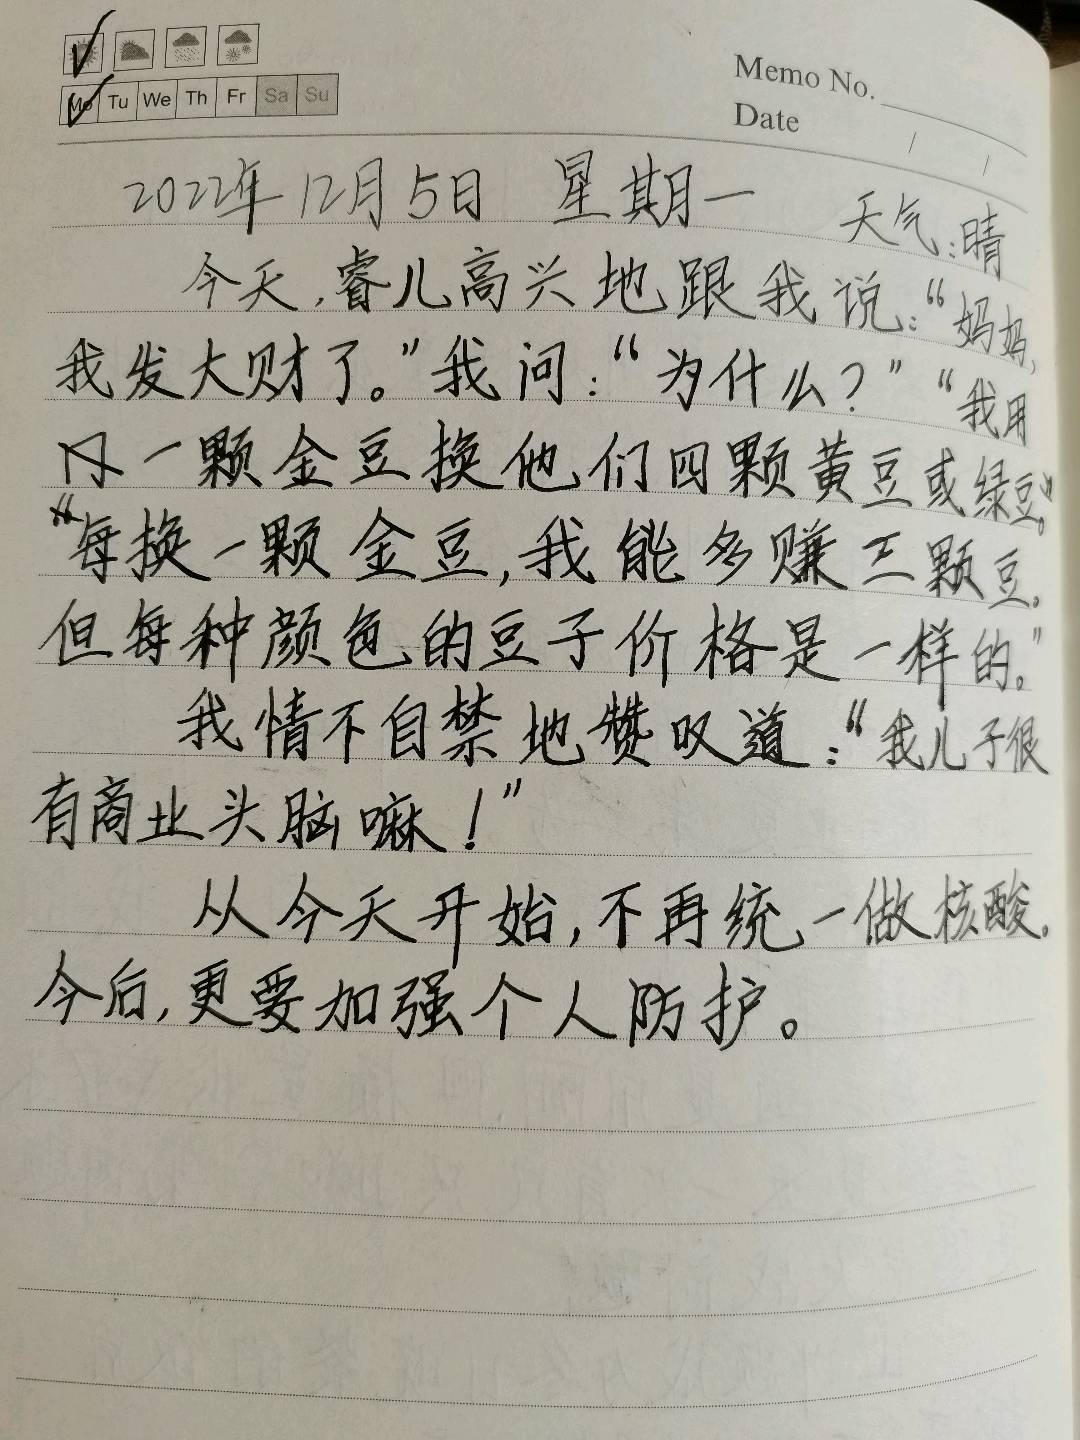 Mo Tu We Th Fr Sa Su
Memo No.
Date / /
2022年12月5日 星期一 天气:晴
今天,睿儿高兴地跟我说:“妈妈,
我发大财了。”我问:“为什么?”“我用
一颗金豆换他们四颗黄豆或绿豆。”
“每换一颗金豆,我能多赚三颗豆。
但每种颜色的豆子价格是一样的。”
我情不自禁地赞叹道:“我儿子很
有商业头脑嘛!”
从今天开始,不再统一做核酸。
今后,更要加强个人防护。